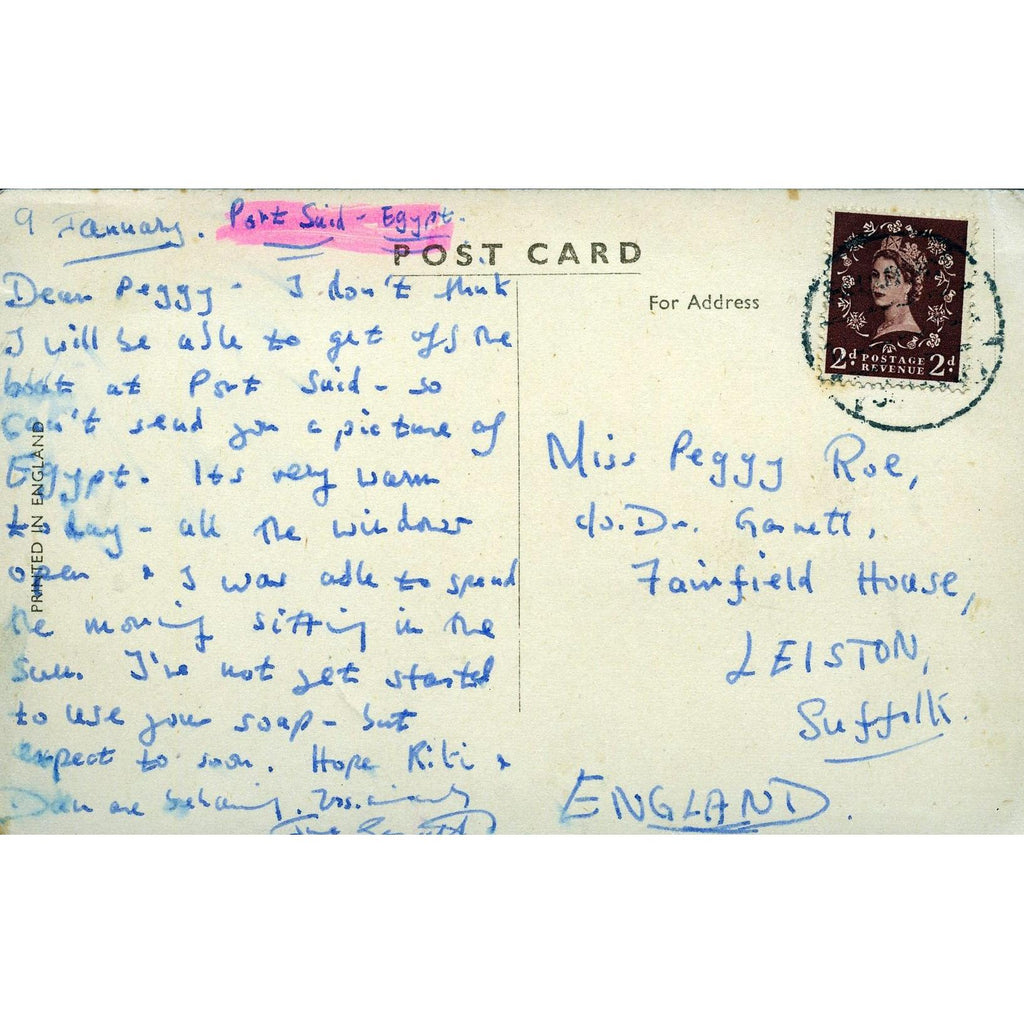 9 January. Port Suid - Egypt.
POST CARD
Dear Peggy - I don't think
I will be able to get off the
boat at Port Suid - so
can't send you a picture of
Egypt. Its very warm
today - all the windows
open & I was able to spend
the morning sitting in the
sun. I've not yet started
to use your soap - but
expect to soon. Hope Riki &
Dan are behaving. Yrs. sincerely
PRINTED IN ENGLAND
For Address
2d POSTAGE REVENUE 2d
Miss Peggy Roe,
c/o. Dr. Garrett,
Fairfield House,
LEISTON,
Suffolk.
ENGLAND.